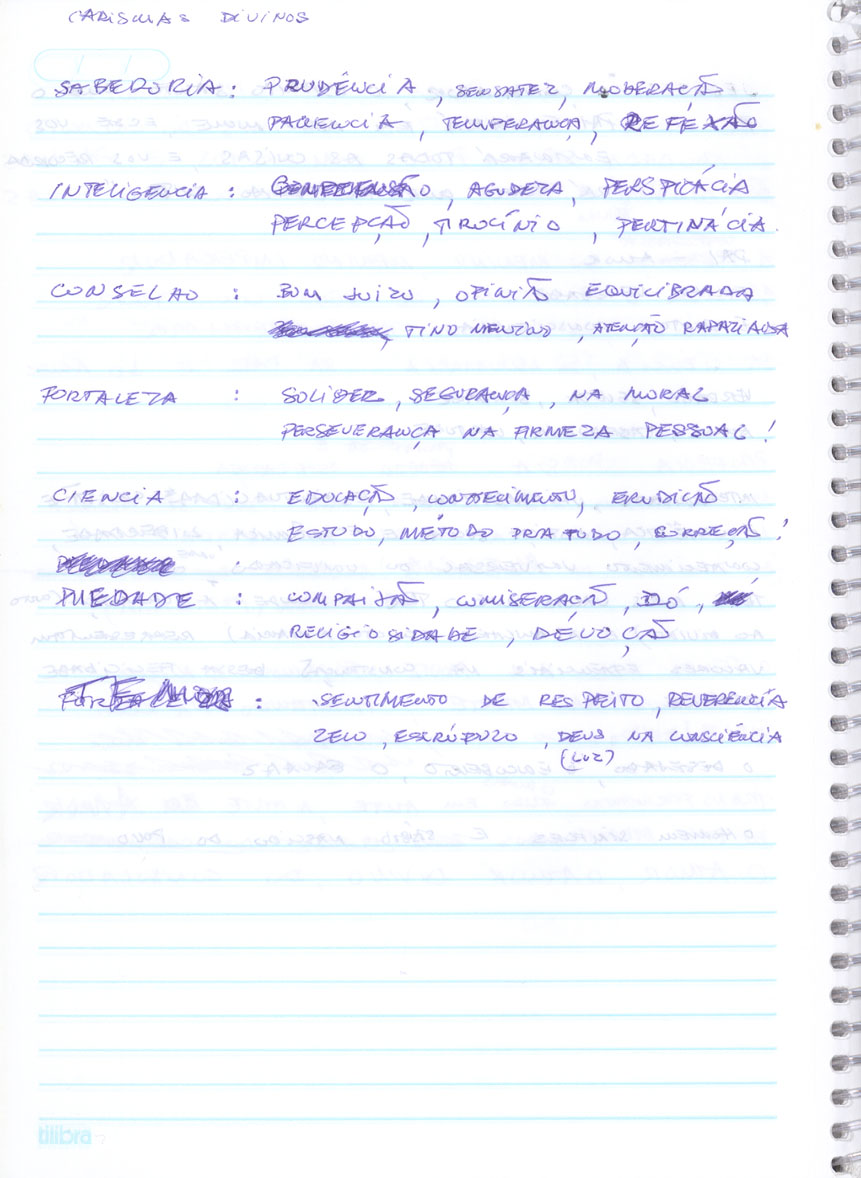 CARISMAS DIVINOS
SABEDORIA : PRUDÊNCIA , SENSATEZ , MODERAÇÃO
PACIENCIA , TEMPERANÇA ,
INTELIGENCIA : , AGUDEZA , PERSPICÁCIA
PERCEPÇÃO , TIROCÍNIO , PERTINÁCIA .
CONSELHO : BOM JUIZO , OPINIÃO EQUILIBRADA
, TINO , ATENÇÃO
FORTALEZA : SOLIDEZ , SEGURANÇA , NA MORAL
PERSEVERANÇA NA FIRMEZA PESSOAL !
CIENCIA : EDUCAÇÃO , CONHECIMENTO , ERUDIÇÃO
ESTUDO , MÉTODO PRA TUDO , CORREÇÃO !
:
PIEDADE : COMPAIXÃO , COMISERAÇÃO , DÓ ,
RELIGIOSIDADE , DEVOÇÃO
TEMOR : SENTIMENTO DE RESPEITO , REVERENCIA
ZELO , ESCRÚPULO , DEUS NA CONSCIÊNCIA
(LUZ)
tilibra